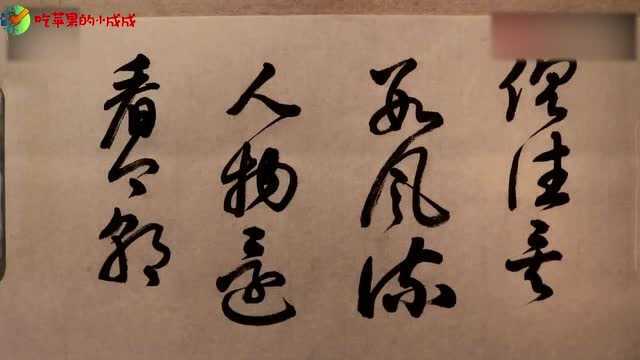 吃苹果的小成成
俱往矣
数风流
人物还
看今朝